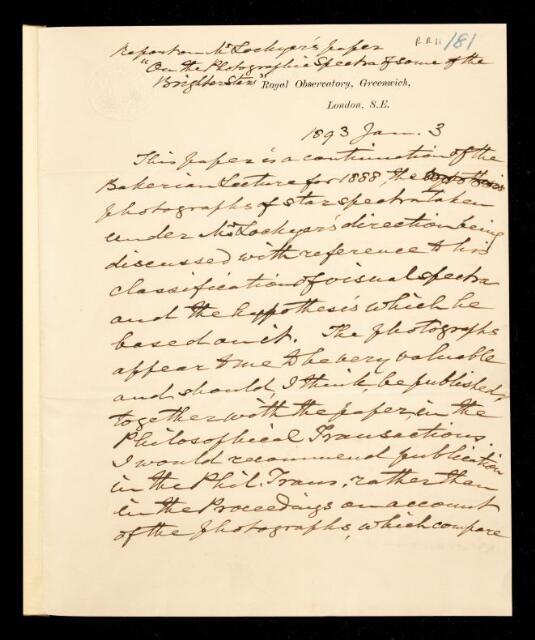 RR11 /181
Report on Mr Lockyer's paper
"On the Photographic Spectra of some of the
Brighter Stars"
Royal Observatory, Greenwich,
London, S.E.
1893 Jan. 3
This paper is a continuation of the
Bakerian Lecture for 1888, the
photographs of star spectra taken
under Mr Lockyer's direction being
discussed with reference to his
classification of visual spectra
and the hypothesis which he
based on it. The photographs
appear to me to be very valuable
and should, I think, be published,
together with the paper, in the
Philosophical Transactions.
I would recommend publication
in the Phil. Trans. rather than
in the Proceedings on account
of the photographs, which compare